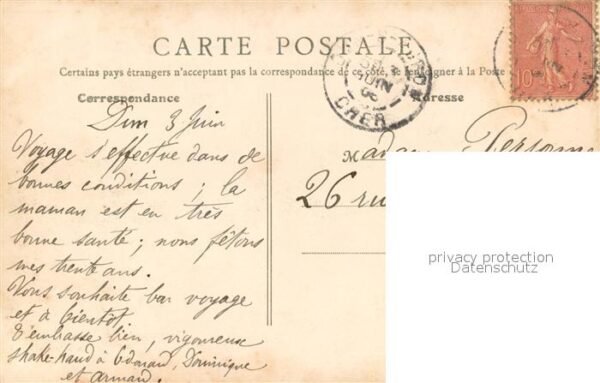 CARTE POSTALE
Certains pays étrangers n'acceptant pas la correspondance de ce côté, se renseigner à la Poste
Correspondance
Adresse
CHER
10
Dim 3 Juin
Voyage s'effectue dans de
bonnes conditions ; la
maman est en très
bonne santé ; nous fêtons
mes trente ans.
Vous souhaite bon voyage
et à bientôt
T'embrasse bien, vigoureuse
shake-hand à Edouard, Dominique
et Armand.
Madame Personne
26 rue
privacy protection
Datenschutz